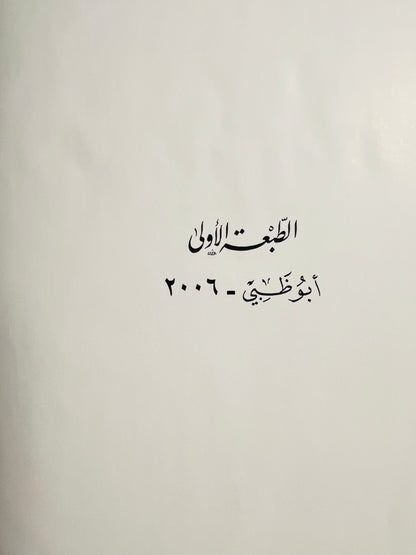 الطَّبْعَة الأولى
أبُو ظَبِيْ - ٢٠٠٦